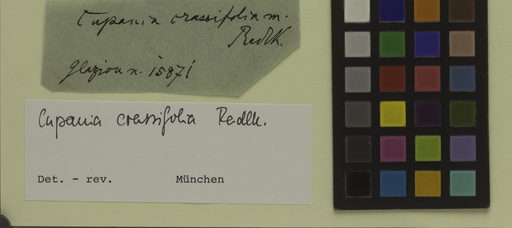 Cupania crassifolia m.
Radlk.
Glaziou n. 15871
Cupania crassifolia Radlk.
Det. - rev. München